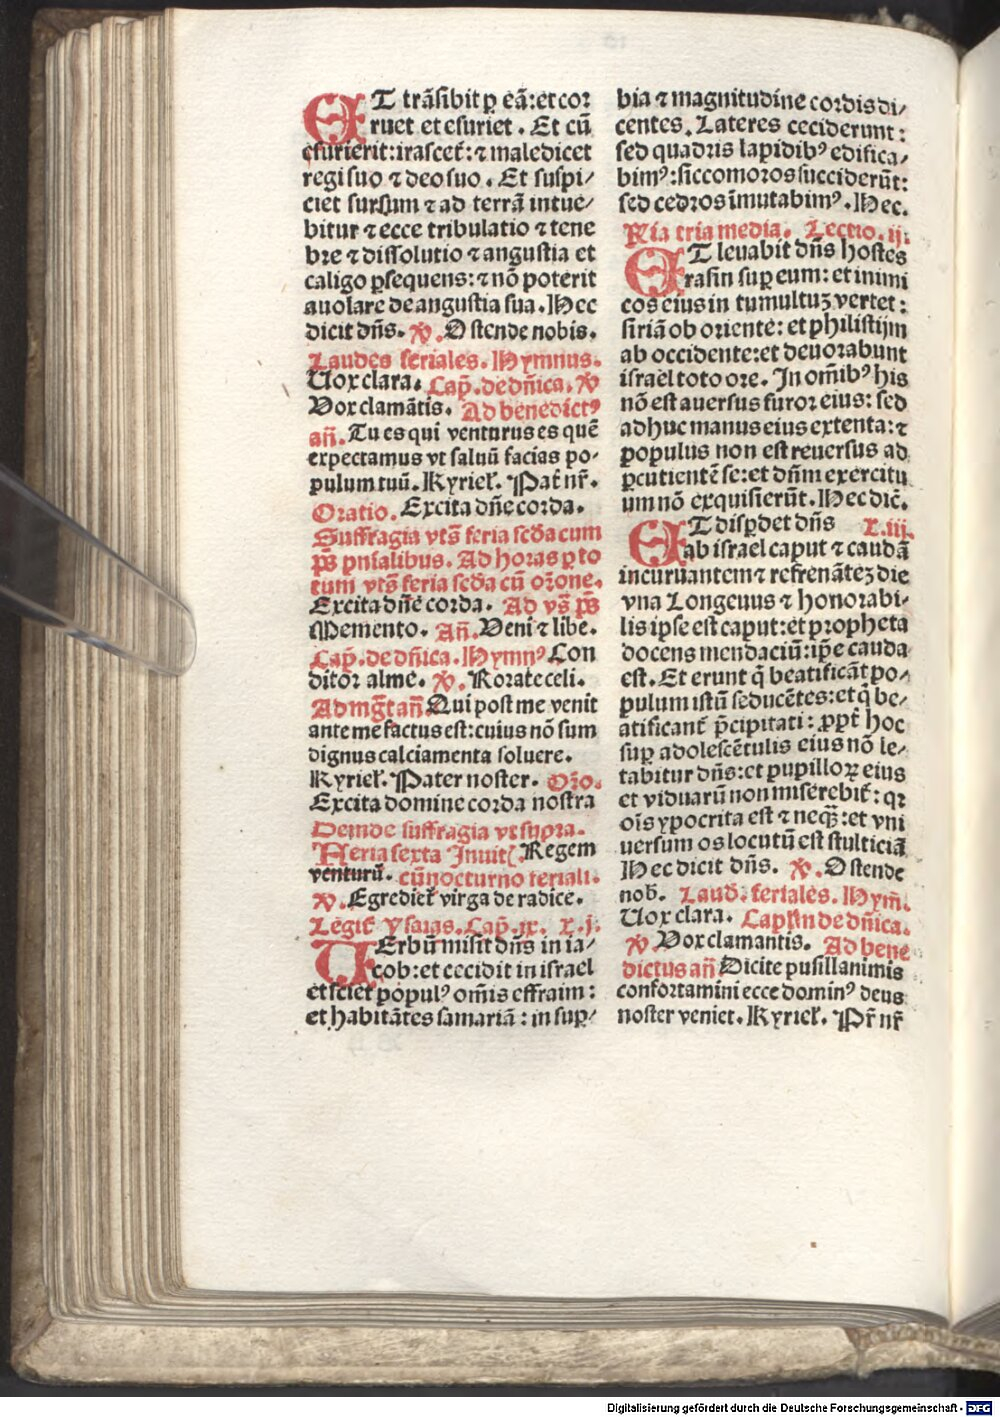 ET trāsibit ꝑ eā: et cor
ruet et esuriet. Et cū
esurierit: irascet̄: ⁊ maledicet
regi suo ⁊ deo suo. Et suspi/
ciet sursum ⁊ ad terrā intue/
bitur ⁊ ecce tribulatio ⁊ tene
bre ⁊ dissolutio ⁊ angustia et
caligo ꝑsequens: ⁊ nō poterit
auolare de angustia sua. Hec
dicit dn̄s. ℟. Ostende nobis.
Laudes feriales. Hymnus.
Uox clara. Cap̄. de dn̄ica. ℣
Vox clamātis. Ad benedictꝰ
an̄. Tu es qui venturus es quē
expectamus vt saluū facias po/
pulum tuū. Kyriel̄. Pat̄ nr̄.
Oratio. Excita dn̄e corda.
Suffragia vts̄ feria scd̄a cum
p̄s p̄nialibus. Ad horas ꝑ to
tum vts̄ feria scd̄a cū or̄one.
Excita dn̄e corda. Ad vs̄ p̄s
Memento. An̄. Veni ⁊ libe.
Cap̄. de dn̄ica. Hymnꝰ Con
ditor alme. ℣. Rorate celi.
Ad mḡt an̄ Qui post me venit
ante me factus est: cuius nō sum
dignus calciamenta soluere.
Kyriel̄. Pater noster. Or̄o.
Excita domine corda nostra
Deinde suffragia vt supra.
Feria sexta Inuit̄. Regem
venturū. cū nocturno feriali.
℣. Egrediet̄ virga de radice.
Legit̄ ysaias. Cap̄. ix. L. j.
VErbū misit dn̄s in ia/
cob: et cecidit in israel
et sciet popul' om̄is effraim:
et habitātes samariā: in sup̄/
bia ⁊ magnitudine cordis di/
centes. Lateres ceciderunt:
sed quadris lapidibꝰ edifica/
bimꝰ: siccomoros succiderūt:
sed cedros īmutabimꝰ. Hec.
Rīa tria media. Lectio. ij.
ET leuabit dn̄s hostes
rasin super eum: et inimi
cos eius in tumultuꝫ vertet:
siriā ob oriente: et philistijm
ab occidente: et deuorabunt
israel toto ore. In om̄ibꝰ his
nō est auersus furor eius: sed
adhuc manus eius extenta: ⁊
populus non est reuersus ad
ꝑcutientē se: et dn̄m exercitu
um nō exquisierūt. Hec dic̄.
ET disꝑdet dn̄s L. iii.
ab israel caput ⁊ caudā
incuruantem ⁊ refrenātēꝫ die
vna Longeuus ⁊ honorabi/
lis ipse est caput: et propheta
docens mendaciū: ip̄e cauda
est. Et erunt q̄ beatificāt po/
pulum istū seducētes: et q̄ be/
atificant̄ p̄cipitati: ꝓpt̄ hoc
suꝑ adolescētulis eius nō le/
tabitur dn̄s: et pupilloꝝ eius
et viduarū non miserebit̄: qꝛ
oīs ypocrita est ⁊ neq̄̄: et vni
uersum os locutū est stulticiā
Hec dicit dn̄s. ℟. Ostende
nob̄. Laud̄. feriales. Hym̄.
Uox clara. Caplm̄ de dn̄ica.
℣ Vox clamantis. Ad bene
dictus an̄ Dicite pusillanimis
confortamini ecce dominꝰ deus
noster veniet. Kyriel̄. Pr̄ nr̄
Digitalisierung gefördert durch die Deutsche Forschungsgemeinschaft - DFG